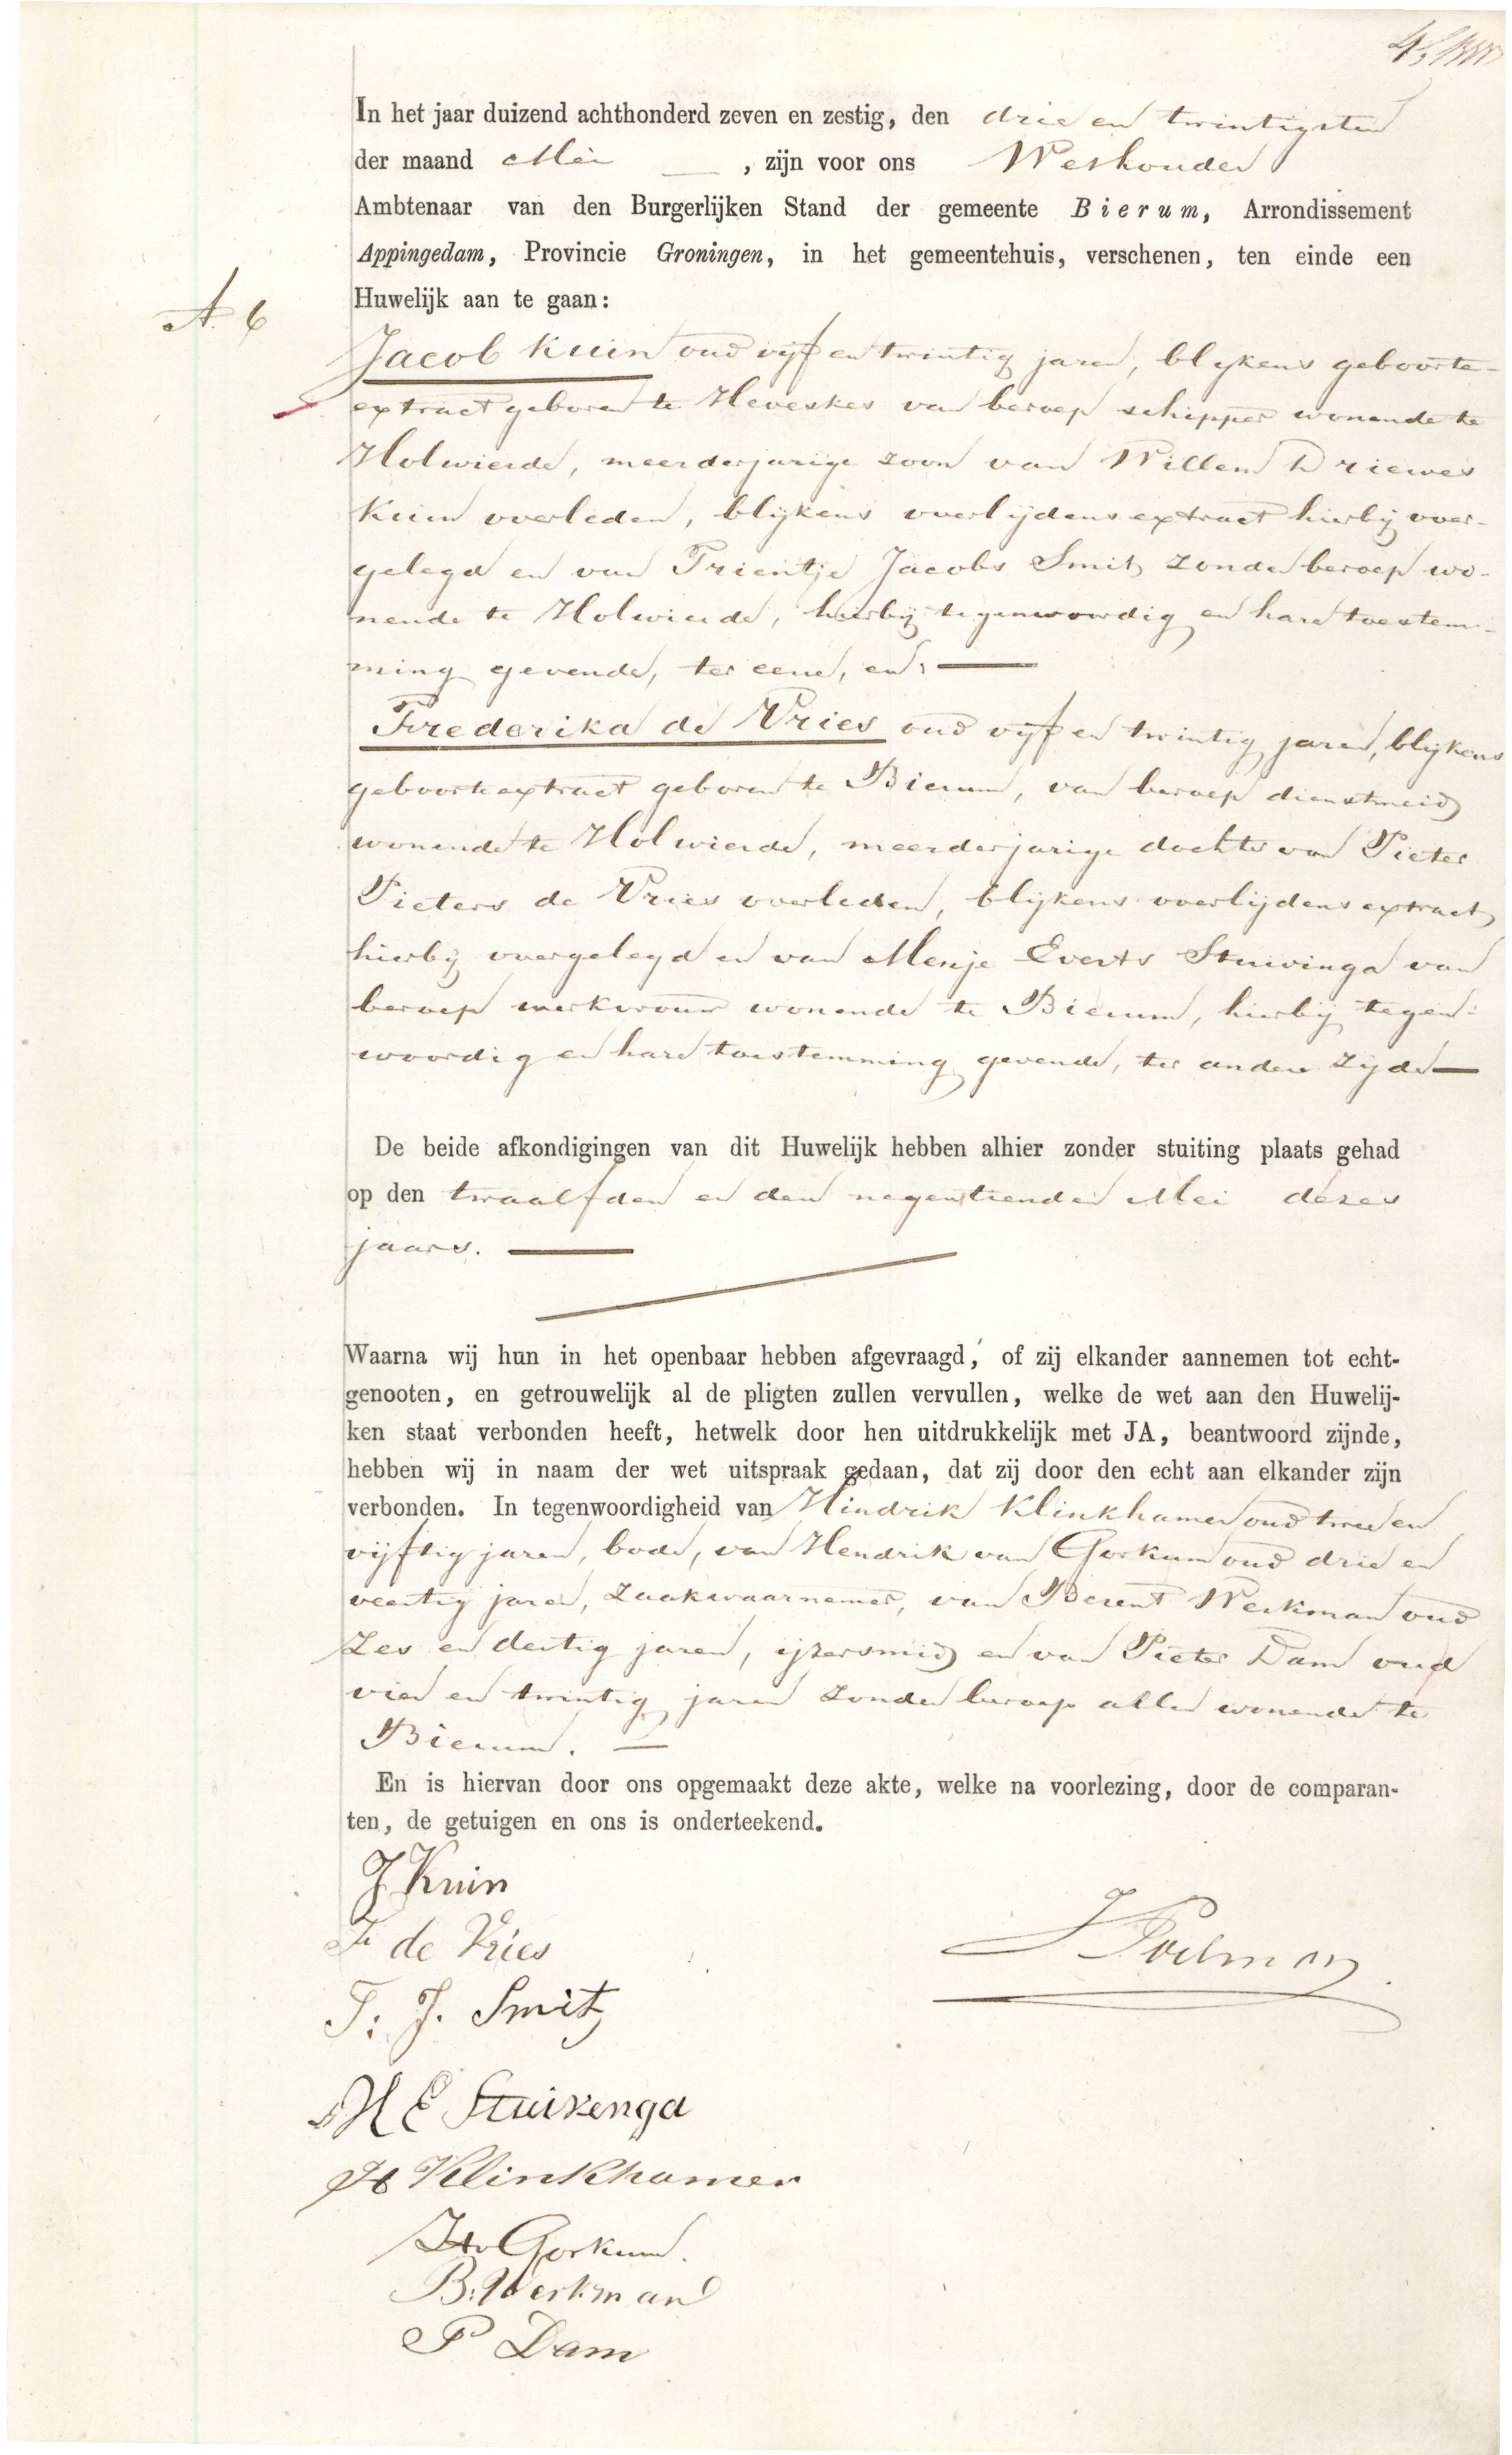 In het jaar duizend achthonderd zeven en zestig, den drie en twintigsten
der maand Mei , zijn voor ons Wethouder
Ambtenaar van den Burgerlijken Stand der gemeente Bierum, Arrondissement
Appingedam, Provincie Groningen, in het gemeentehuis, verschenen, ten einde een
Huwelijk aan te gaan:
A. 6
Jacob Kuin oud vijf en twintig jaren, blykens geboorte-
extract geboren te Heveskes van beroep schipper wonende te
Holwierde, meerderjarige zoon van Willem Driewes
Kuin overleden, blijkens overlijdens extract hierbij over-
gelegd en van Trientje Jacobs Smit zonder beroep wo-
nende te Holwierde, hierbij tegenwoordig en hare toestem-
ming gevende, ter eene, en:
Frederika de Vries oud vijf en twintig jaren, blijkens
geboorteextract geboren te Bierum, van beroep dienstmeid
wonende te Holwierde, meerderjarige dochter van Pieter
Pieters de Vries overleden, blijkens overlijdens extract
hierbij overgelegd en van Menje Everts Stuivinga van
beroep werkvrouw wonende te Bierum, hierbij tegen-
woordig en hare toestemming gevende, ter andere zijde
De beide afkondigingen van dit Huwelijk hebben alhier zonder stuiting plaats gehad
op den twaalfden en den negentienden Mei dezes
jaars.
Waarna wij hun in het openbaar hebben afgevraagd, of zij elkander aannemen tot echt-
genooten, en getrouwelijk al de pligten zullen vervullen, welke de wet aan den Huwelij-
ken staat verbonden heeft, hetwelk door hen uitdrukkelijk met JA, beantwoord zijnde,
hebben wij in naam der wet uitspraak gedaan, dat zij door den echt aan elkander zijn
verbonden. In tegenwoordigheid van Hindrik Klinkhamer oud twee en
vijftig jaren, bode, van Hendrik van Gorkum oud drie en
veertig jaren, zaakwaarnemer, van Berent Werkman oud
zes en dertig jaren, ijzersmid en van Pieter Dam oud
vier en twintig jaren zonder beroep allen wonende te
Bierum.
En is hiervan door ons opgemaakt deze akte, welke na voorlezing, door de comparan-
ten, de getuigen en ons is onderteekend.
J Kuin
F de Vries
T. J. Smit
M E Stuivenga
H Klinkhamer
Hv Gorkum.
B. Werkman
P Dam